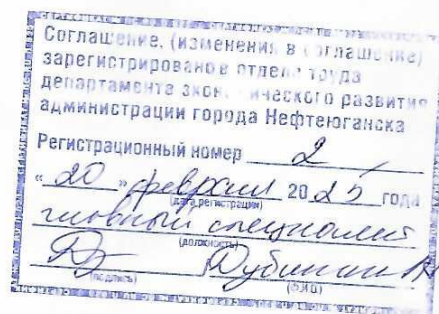 Соглашение, (изменения в соглашение)
зарегистрировано в отделе труда
департамента экономического развития
администрации города Нефтеюганска
Регистрационный номер 2
«20» февраля 2025 года
(дата регистрации)
главный специалист
(должность)
(подпись) (Ф.И.О.)